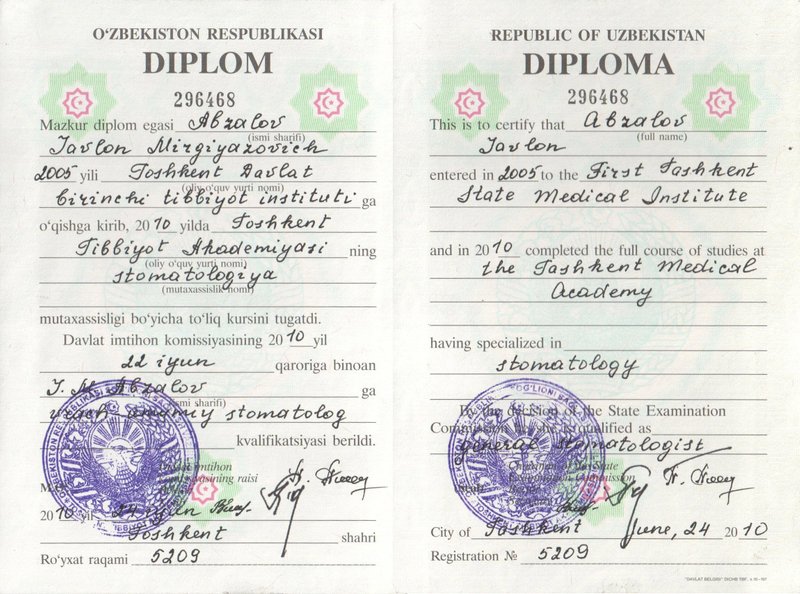 O‘ZBEKISTON RESPUBLIKASI
DIPLOM
296468
Mazkur diplom egasi Abzalov
(ismi sharifi)
Javlon Mirgiyazovich
2005 yili Toshkent Davlat
(oliy o‘quv yurti nomi)
birinchi tibbiyot instituti ga
o‘qishga kirib, 2010 yilda Toshkent
Tibbiyot Akademiyasi ning
(oliy o‘quv yurti nomi)
stomatologiya
(mutaxassislik nomi)
mutaxassisligi bo‘yicha to‘liq kursini tugatdi.
Davlat imtihon komissiyasining 2010 yil
22 iyun qaroriga binoan
J. M. Abzalov ga
(ismi sharifi)
vrach umumiy stomatolog
kvalifikatsiyasi berildi.
Davlat imtihon
komissiyasining raisi
2010 yil 24 iyun
Toshkent shahri
Ro‘yxat raqami 5209
REPUBLIC OF UZBEKISTAN
DIPLOMA
296468
This is to certify that Abzalov
(full name)
Javlon
entered in 2005 to the First Tashkent
State Medical Institute
and in 2010 completed the full course of studies at
the Tashkent Medical
Academy
having specialized in
stomatology
By the decision of the State Examination
Commission he, she is qualified as
general stomatologist
Chairman of the State
Examination Commission
City of Tashkent June, 24 2010
Registration № 5209